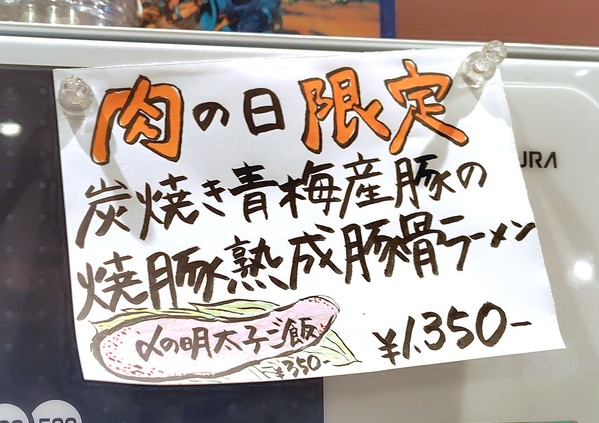 肉の日限定
炭焼き青梅産豚の
焼豚熟成豚骨ラーメン
〆の明太子ご飯
¥350-
¥1.350-
URA